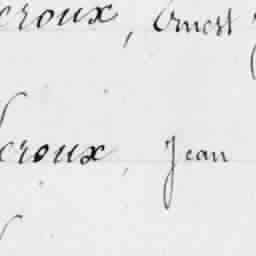 croux, Ernest
croux, Jean